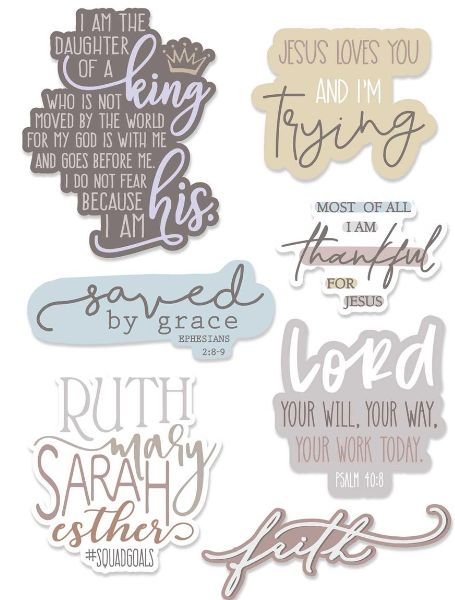 I AM THE
DAUGHTER
OF A king
WHO IS NOT
MOVED BY THE WORLD
FOR MY GOD IS WITH ME
AND GOES BEFORE ME.
I DO NOT FEAR
BECAUSE
I AM his.
JESUS LOVES YOU
AND I'M
trying
MOST OF ALL
I AM
thankful
FOR
JESUS
saved
by grace
EPHESIANS
2:8-9
Lord
YOUR WILL, YOUR WAY,
YOUR WORK TODAY.
PSALM 40:8
RUTH
mary
SARAH
esther
#SQUADGOALS
faith